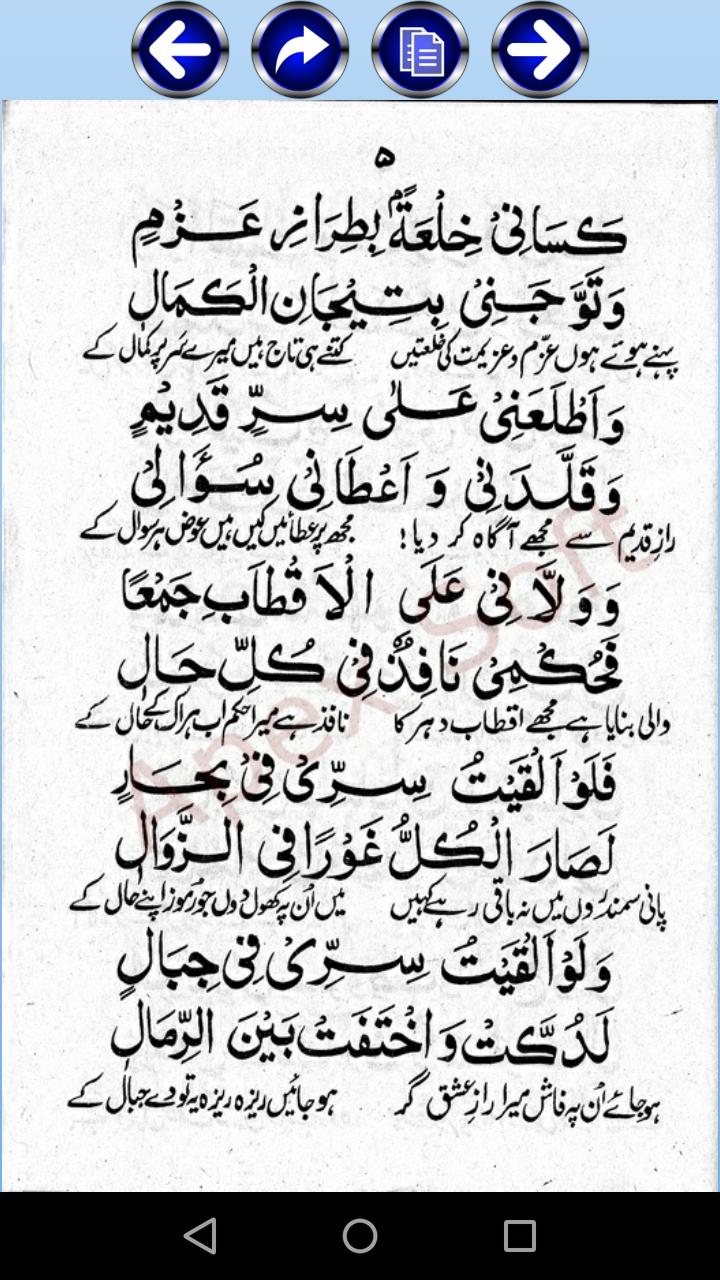 ۵
كَسَانِیْ خِلْعَةًۢ بِطِرَازِ عَزْمٍ
وَتَوَّجَنِیْ بِتِیْجَانِ الْكَمَالِ
پہنے ہوئے ہوں عزم و عزیمت کی خلعتیں کتنے ہی تاج ہیں میرے سر پر کمال کے
وَاَطْلَعَنِیْ عَلٰی سِرٍّ قَدِیْمٍ
وَقَلَّدَنِیْ وَ اَعْطَانِیْ سُؤَالِیْ
رازِ قدیم سے مجھے آگاہ کر دیا! مجھ پر عطائیں کیں ہیں عوض ہر سوال کے
وَوَلَّانِیْ عَلَی الْاَقْطَابِ جَمْعًا
فَحُكْمِیْ نَافِذٌ فِیْ كُلِّ حَالِ
والی بنایا ہے مجھے اقطاب دہر کا نافذ ہے میرا حکم اب ہر اک کے حال کے
فَلَوْ اَلْقَیْتُ سِرِّیْ فِیْ بِحَارٍ
لَصَارَ الْكُلُّ غَوْرًا فِی الزَّوَالِ
پانی سمندروں میں نہ باقی رہے کہیں میں اُن پہ کھول دوں جو رموز اپنے حال کے
وَلَوْ اَلْقَیْتُ سِرِّیْ فِیْ جِبَالٍ
لَدُكَّتْ وَاخْتَفَتْ بَیْنَ الرِّمَالِ
ہو جائے اُن پہ فاش میرا رازِ عشق گر ہو جائیں ریزہ ریزہ یہ تودے جبال کے
Apex Soft